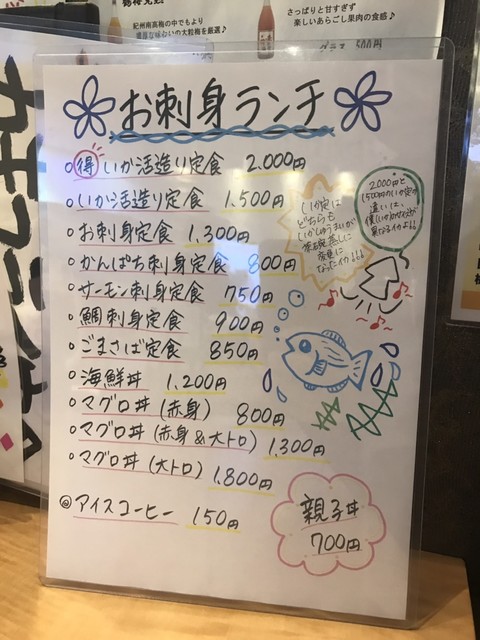 紀州南高梅の中でもより
濃厚な味わいの大粒梅を厳選♪
さっぱりと甘すぎず
楽しいあらごし果肉の食感♪
グラス 500円
お刺身ランチ
○ 得 いか活造り定食 2.000円
○ いか活造り定食 1.500円
○ お刺身定食 1.300円
○ かんぱち刺身定食 800円
○ サーモン刺身定食 750円
○ 鯛刺身定食 900円
○ ごまさば定食 850円
○ 海鮮丼 1.200円
○ マグロ丼(赤身) 800円
○ マグロ丼(赤身&大トロ) 1.300円
○ マグロ丼(大トロ) 1.800円
◎ アイスコーヒー 150円
いか定は
どちらも
いかしゅうまいが
茶碗蒸しに
変更に
なったイカ!!!
2000円と
1500円のいか定の
違いは、
異なるイカよ!!
親子丼
700円